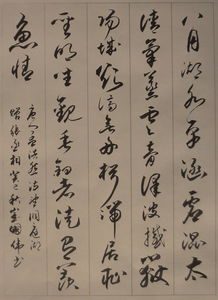 八月湖水平涵虚混太
清氣蒸雲夢澤波撼嶽
陽城欲濟無舟楫端居恥
聖明坐觀垂釣者徒有羨
魚情
唐人孟浩然詩望洞庭湖
贈張丞相 秋 國偉書